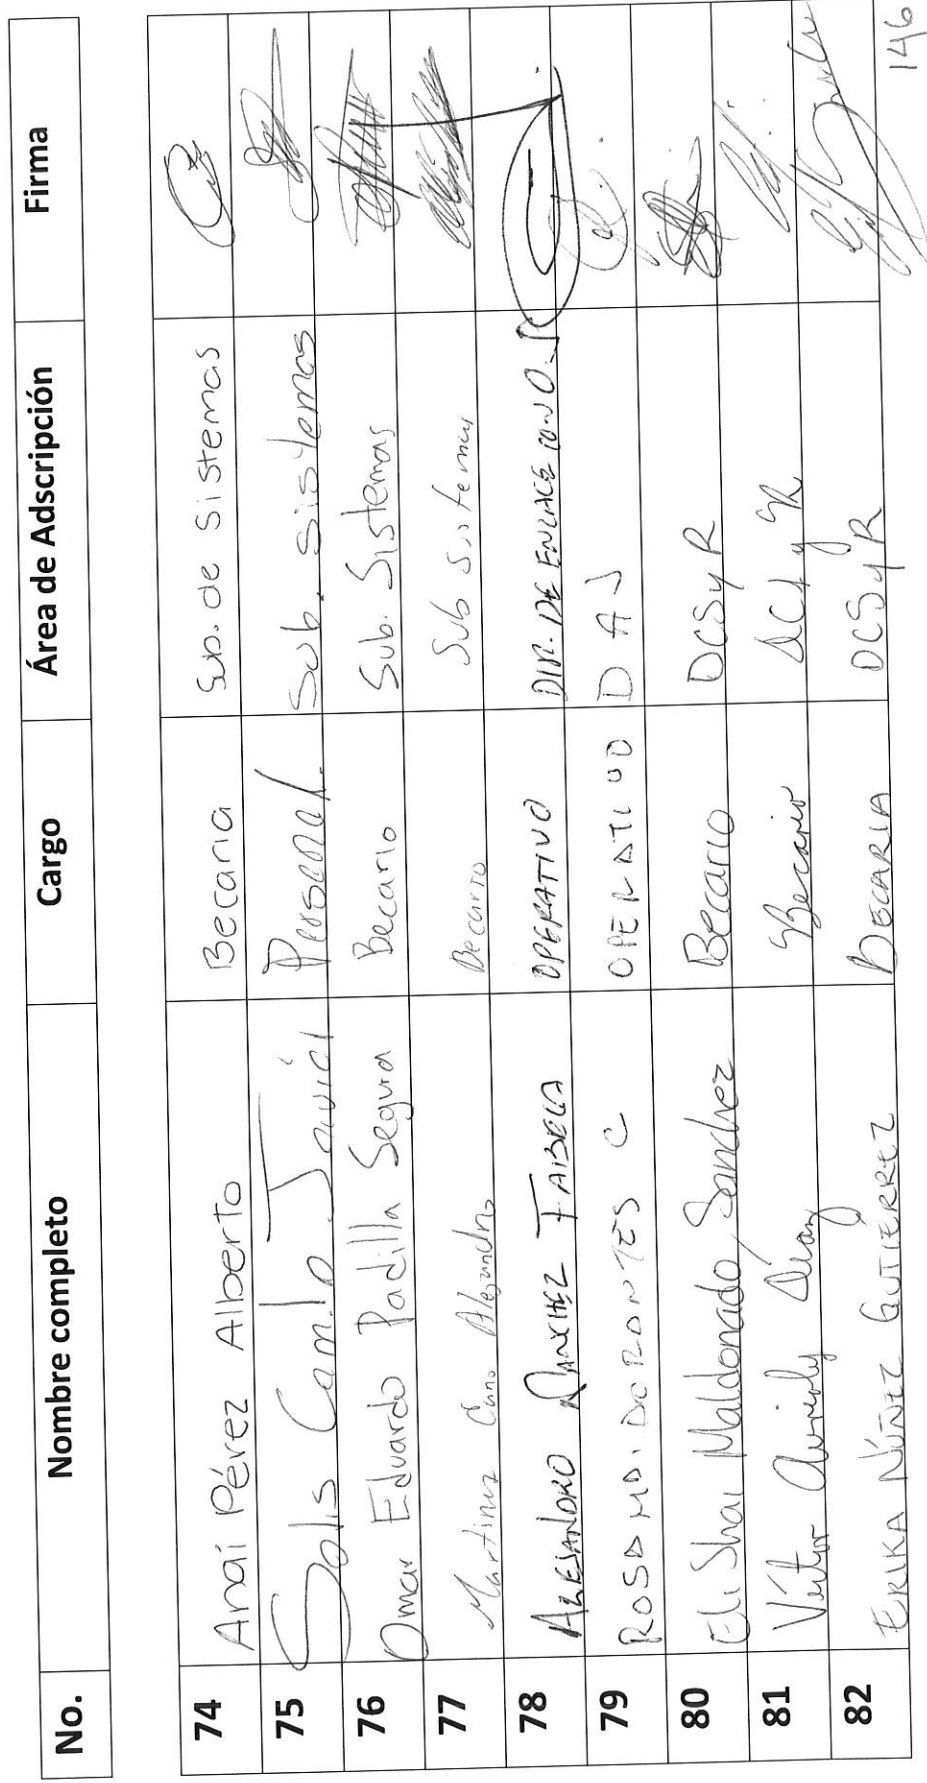 No. Nombre completo Cargo Área de Adscripción Firma
74 Anaí Pérez Alberto Becaria Sub. de Sistemas
75 Solis Javier Personal. Sub. Sistemas
76 Omar Eduardo Padilla Segura Becario Sub. Sistemas
77 Martinez Cano Alejandro Becario Sub Sistemas
78 ALEJANDRO SANCHEZ FABELA OPERATIVO DIR. DE ENLACE
79 ROSA Ma. DORONTES C OPERATIVO D A J
80 Eli Shai Maldonado Sanchez Becario DCSyR
81 Víctor Becario DCS y R
82 ERIKA NÚÑEZ GUTIÉRREZ BECARIA DCSyR
146